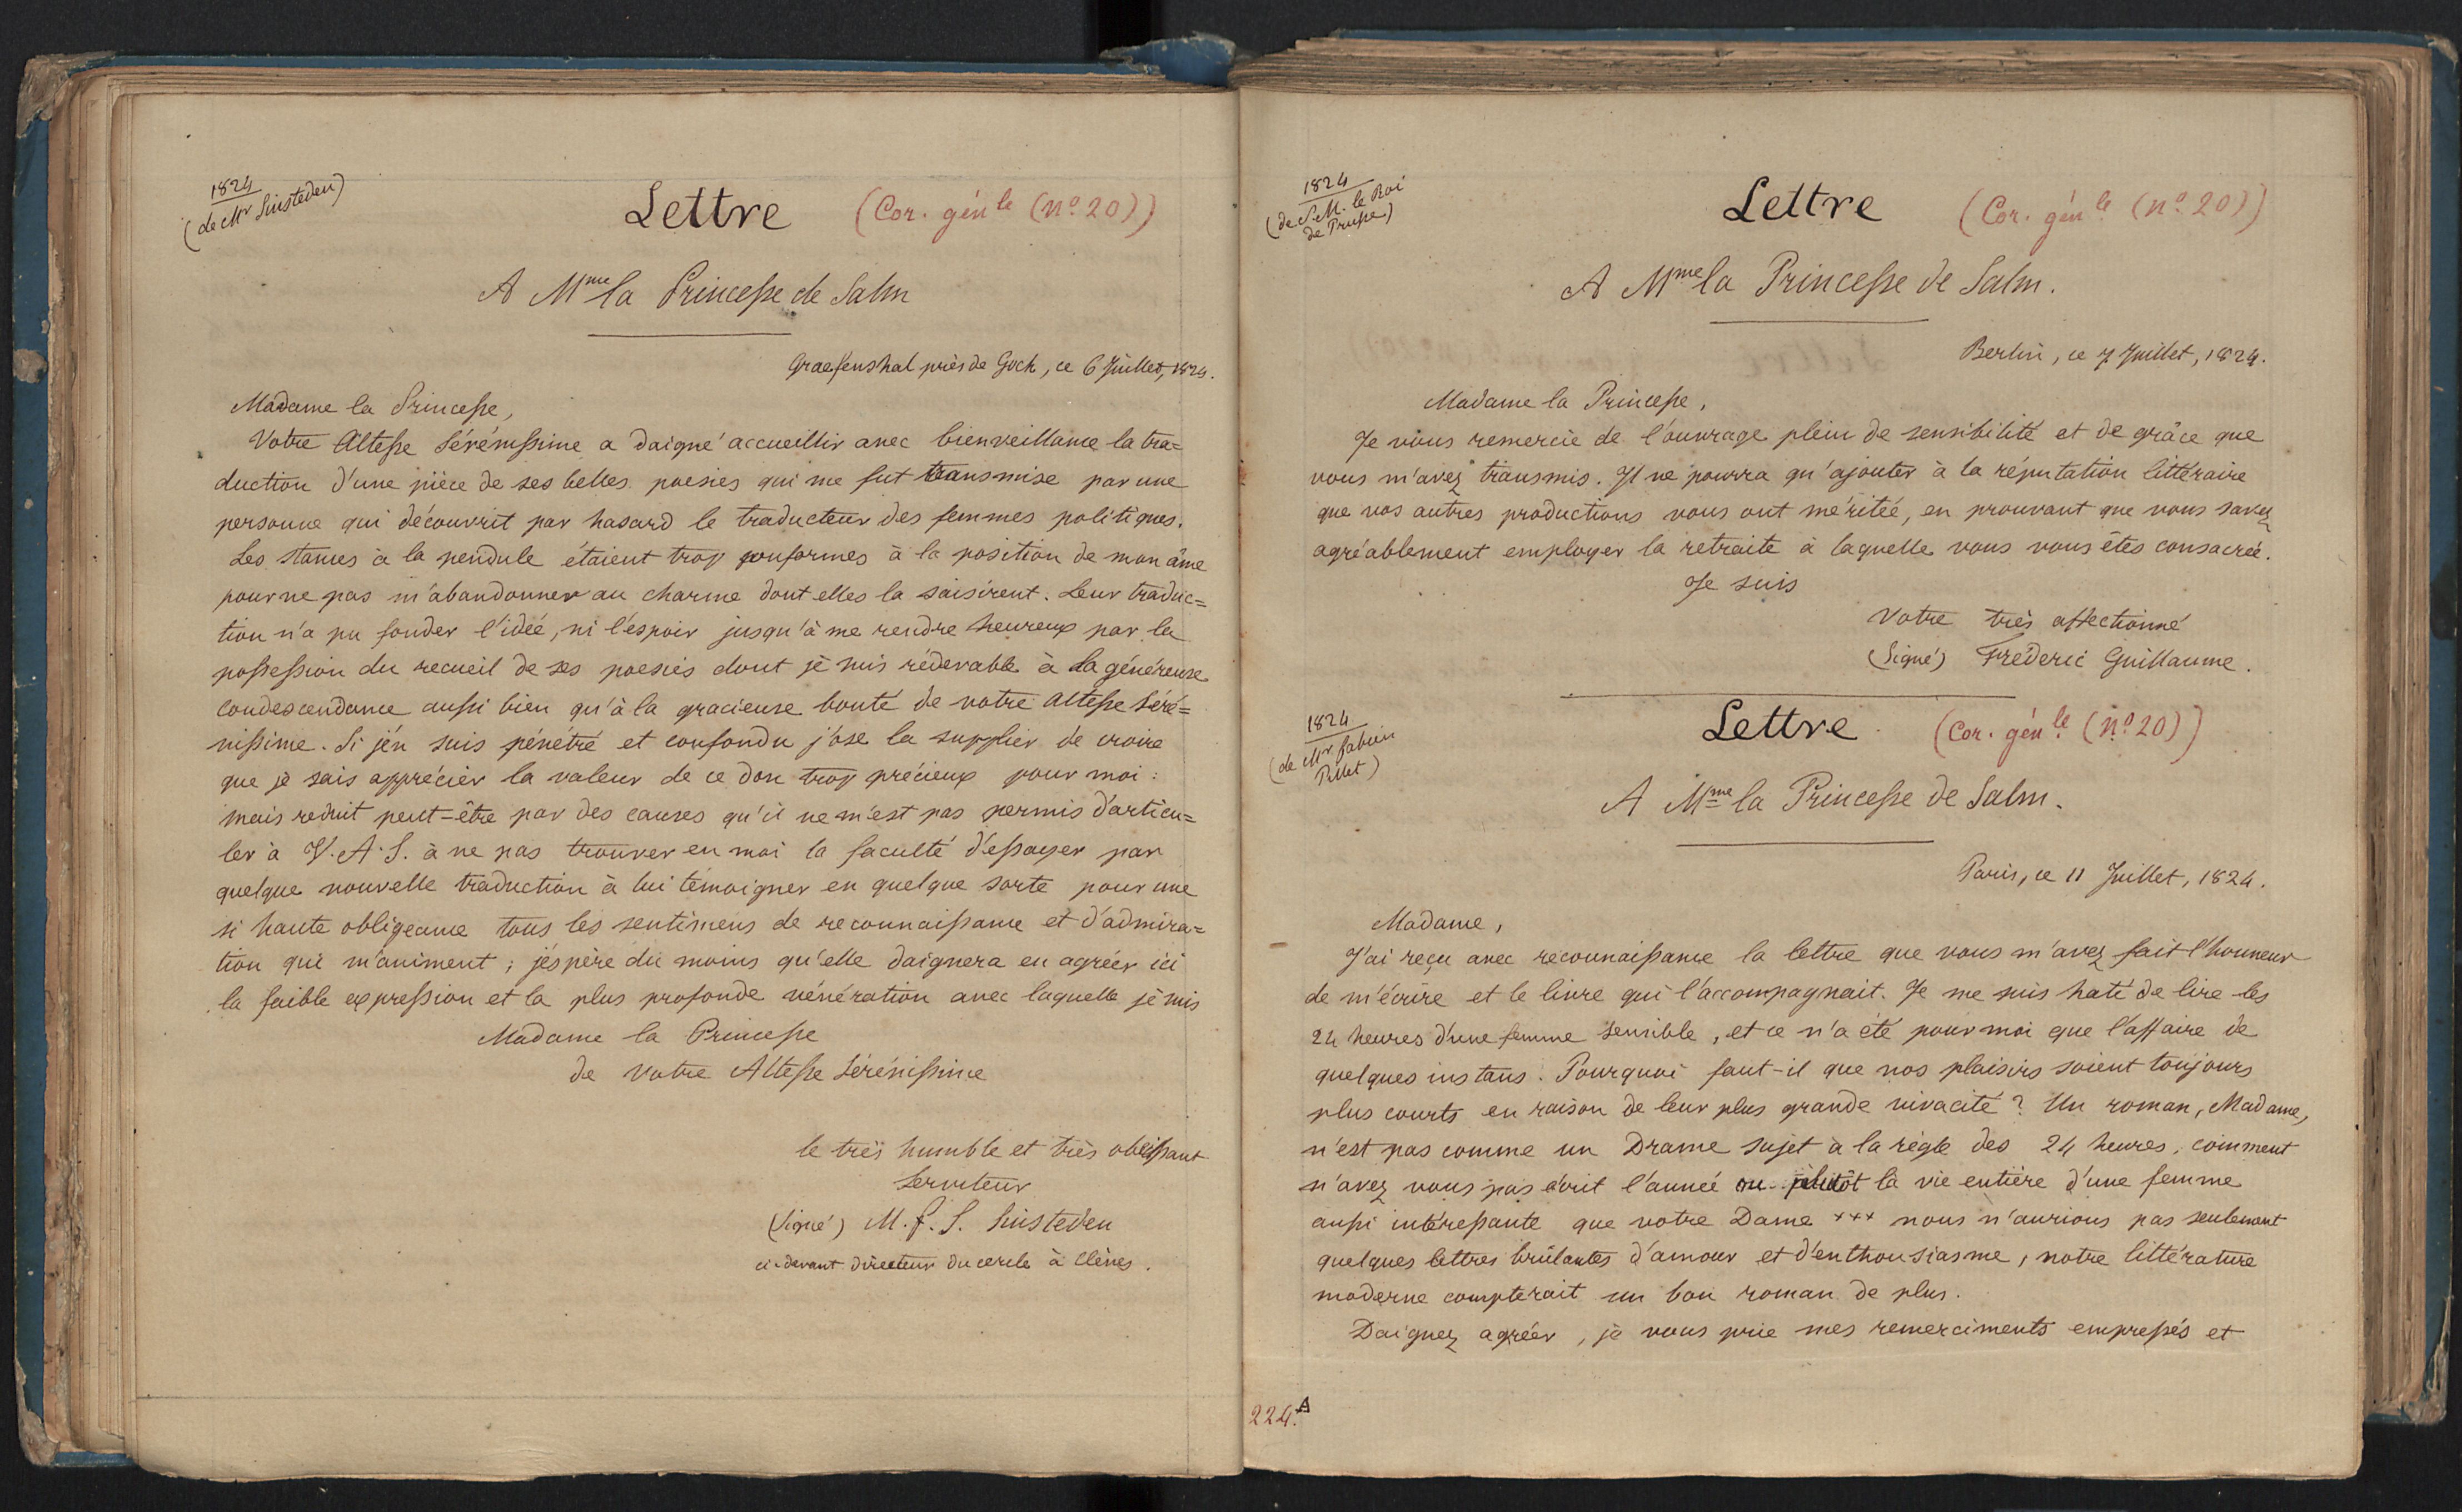 1824
(de Mr Sinsteden)
Lettre (Cor. génle (no. 20))
A Mme la Princesse de Salm
Graefenshal près de Goch, ce 6 Juillet, 1824.
Madame la Princesse,
Votre Altesse Sérénissime a daigné accueillir avec bienveillance la tra=
duction d'une pièce de ses belles poesies qui me fut transmise par une
personne qui découvrit par hasard le traducteur des femmes politiques.
Les stances à la pendule étaient trop conformes à la position de mon âme
pour ne pas m'abandonner au charme dont elles la saisirent. Leur traduc=
tion n'a pu fonder l'idée, ni l'éspoir jusqu'à me rendre heureux par la
possession du recueil de ses poesies dont je suis réderable à la généreuse
condescendance aussi bien qu'à la gracieuse bonté de votre Altesse Séré=
nissime. Si j'én suis pénétré et confondu j'ose la supplier de croire
que je sais apprécier la valeur de ce don trop précieux pour moi :
mais reduit peut-être par des causes qu'il ne m'est pas permis d'articu=
ler à V. A. S. à ne pas trouver en moi la faculté d'éssayer par
quelque nouvelle traduction à lui témoigner en quelque sorte pour une
si haute obligeance tous les sentimens de reconnaissance et d'admira=
tion qui m'animent ; j'éspère du moins qu'elle daignera en agréer ici
la faible expression et la plus profonde vénération avec laquelle je suis
Madame la Princesse
de Votre Altesse Sérénissime
le très humble et très obéissant
Serviteur
(Signé) M. f. S. Sinsteden
ci-devant directeur du cercle à Clèves.
1824
(de S. M. le Roi
de Prusse)
Lettre (Cor. génle. (no. 20))
A Mme la Princesse de Salm.
Berlin, ce 7 Juillet, 1824.
Madame la Princesse,
Je vous remercie de l'ouvrage plein de sensibilité et de grâce que
vous m'avez transmis. Il ne pourra qu'ajouter à la réputation littéraire
que vos autres productions vous ont méritée, en prouvant que vous savez
agréablement employer la retraite à laquelle vous vous êtes consacrée.
Je suis
Votre très affectionné
(Signé) Fréderic Guillaume.
1824
(de Mr fabien
Pillet)
Lettre (Cor. génle. (no. 20))
A Mme la Princesse de Salm.
Paris, ce 11 Juillet, 1824.
Madame,
J'ai reçu avec reconnaissance la lettre que vous m'avez fait l'honneur
de m'écrire et le livre qui l'accompagnait. Je me suis haté de lire les
24 heures d'une femme sensible, et ce n'a été pour moi que l'affaire de
quelques instans. Pourquoi faut-il que nos plaisirs soient toujours
plus courts en raison de leur plus grande vivacité ? Un roman, Madame,
n'est pas comme un Drame sujet à la règle des 24 heures, comment
n'avez vous pas écrit l'année ou plutôt la vie entière d'une femme
aussi intéressante que votre Dame +++ nous n'aurions pas seulement
quelques lettres brûlantes d'amour et d'enthousiasme, notre littérature
moderne compterait un bon roman de plus.
Daignez agréer, je vous prie mes remerciments empressés et
224.A